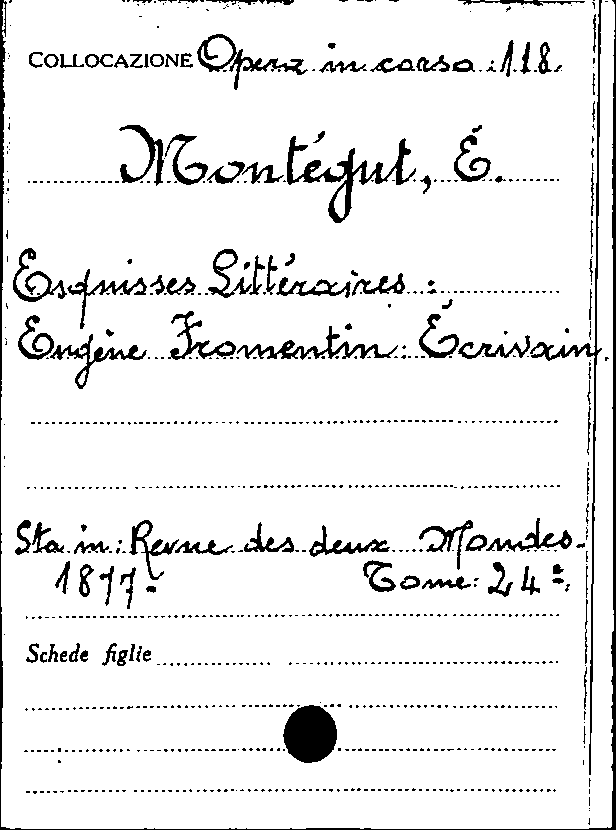 COLLOCAZIONE Opera in corso :118.
Montégut, É.
Esquisses Littéraires :
Eugène Fromentin: Écrivain.
Sta in: Revue des deux Mondes.
1877- Tome: 24º.
Schede figlie